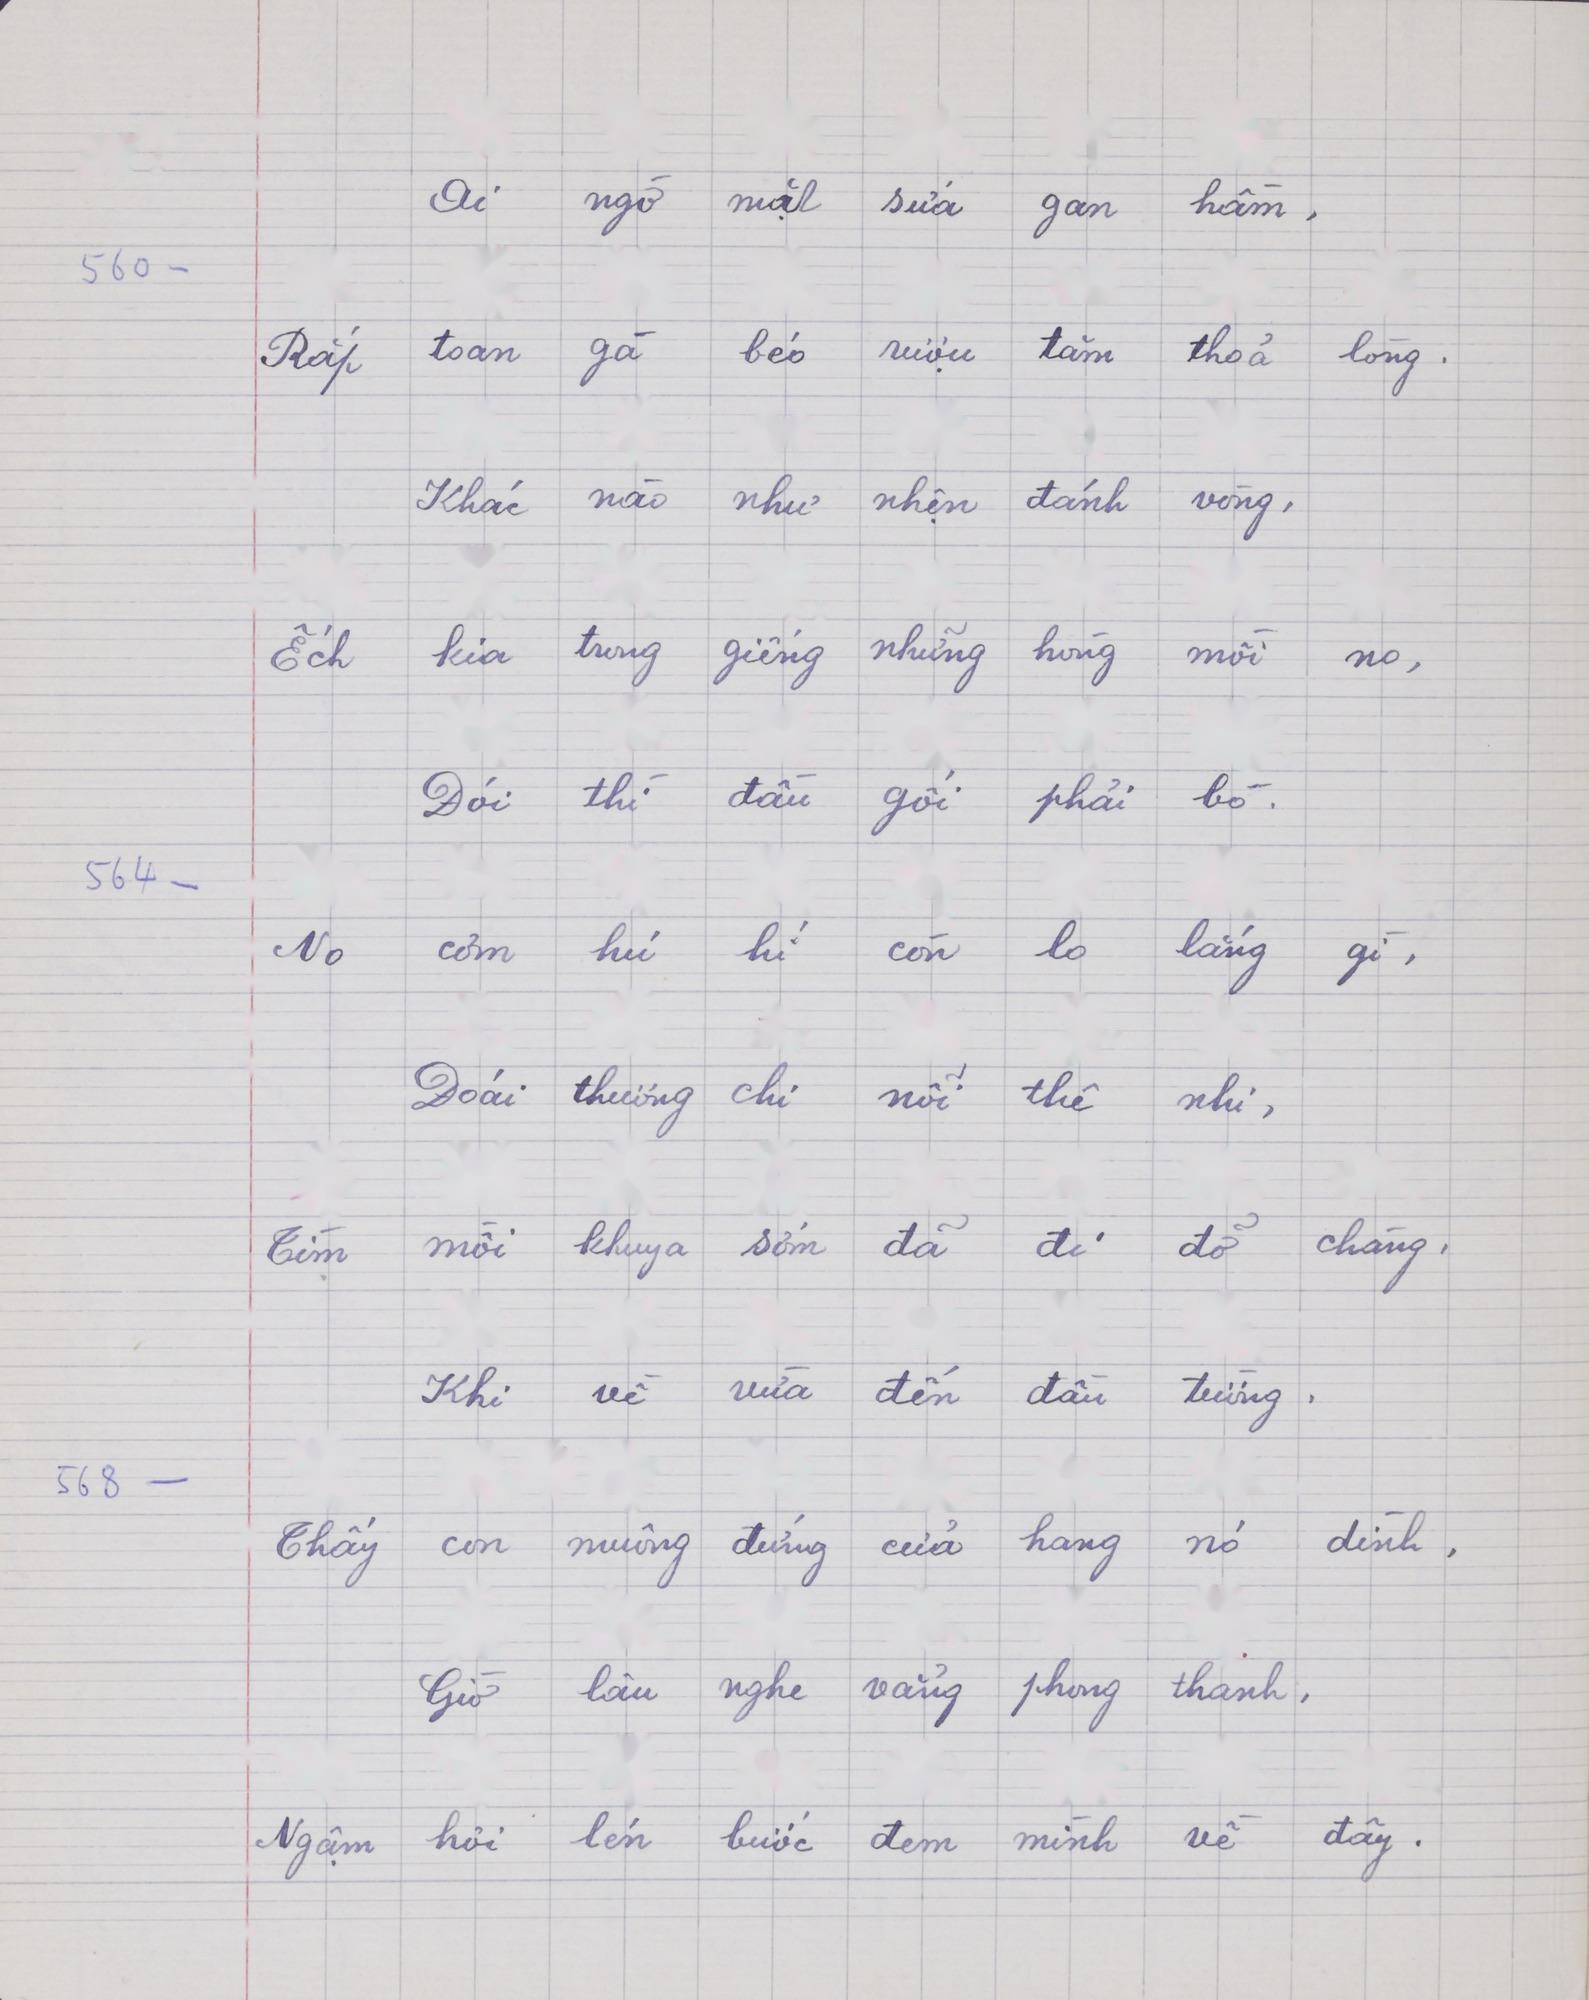 Ai ngờ mật sứa gan hầm,
560 -
Rắp toan gà béo rượu tăm thoả lòng.
Khác nào như nhện đánh vòng,
Ếch kia trong giếng những hòng mồi no,
Đói thì đầu gối phải bò.
564 -
No cơm hú hí còn lo lắng gì,
Đoái thương chi nỗi thê nhi,
Tìm mồi khuya sớm đã đi đỡ chàng,
Khi về vừa đến đầu tường,
568 -
Thấy con muông đứng cửa hang nó dình,
Giờ lâu nghe vẳng phong thanh,
Ngậm hơi lén bước đem mình về đây.